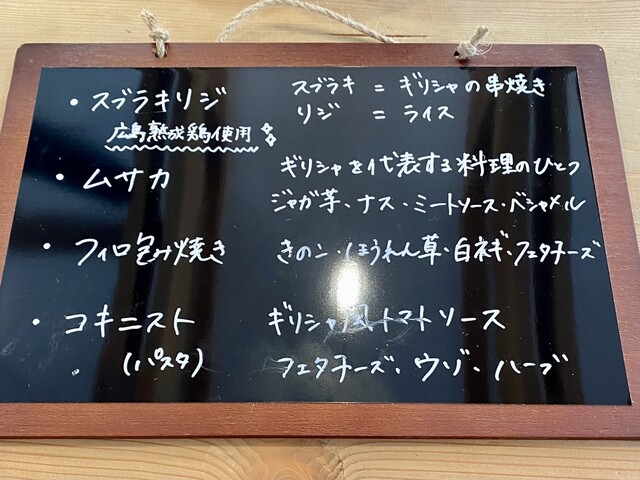 ・スブラキリジ
スブラキ = ギリシャの串焼き
リジ = ライス
広島熟成鶏使用
・ムサカ
ギリシャを代表する料理のひとつ
ジャガ芋・ナス・ミートソース・ベシャメル
・フィロ包み焼き
きのこ・ほうれん草・白ネギ・フェタチーズ
・コキニスト
ギリシャ風トマトソース
(パスタ)
フェタチーズ・ウゾ・ハーブ